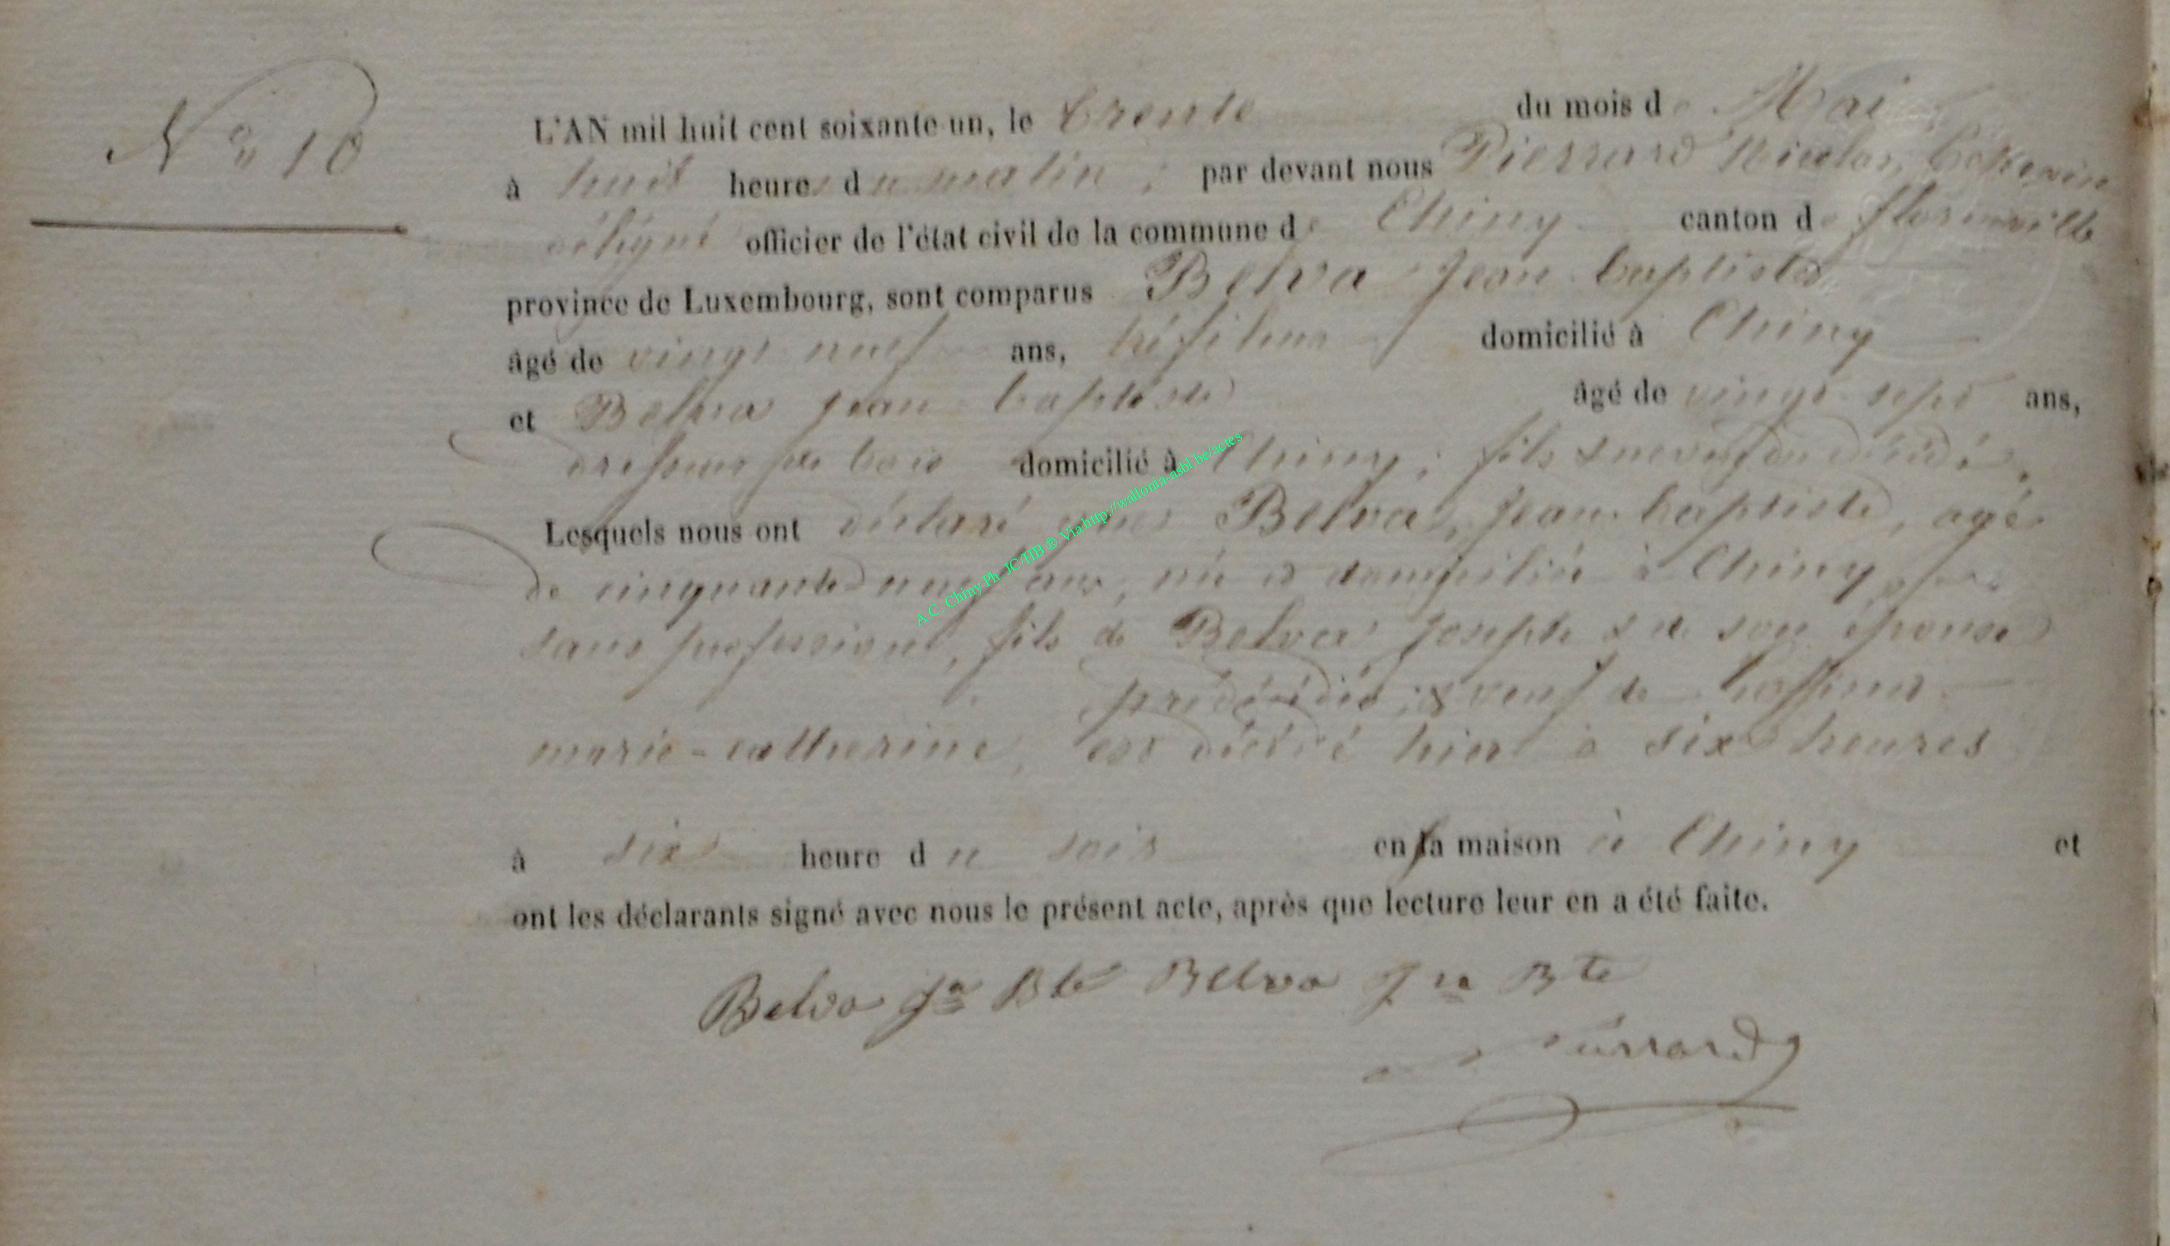 N° 10
L'AN mil huit cent soixante-un, le trente du mois de Mai
à huit heures du matin ; par devant nous Pierrard Nicolas, Echevin
délégué officier de l'état civil de la commune de Chiny canton de florenville
province de Luxembourg, sont comparus Belva Jean baptiste
âgé de vingt neuf ans, domicilié à Chiny
et Belva jean baptiste âgé de vingt-sept ans,
de bois domicilié à Chiny ; fils & du décédé,
Lesquels nous ont déclaré que Belva, jean-baptiste, agé
de cinquante neuf ans, né & domicilié à Chiny,
sans profession, fils de Belva Joseph & de son épouse
prédécédée ; & veuf de
marie-catherine, est décédé hier à six heures
à six heure du soir en sa maison à Chiny et
ont les déclarants signé avec nous le présent acte, après que lecture leur en a été faite.
Belva Jn Bte Belva Jn Bte
Pierrard
A.C. Chiny Ph. JC-HB ® Via http://walloma-asbl.be/actes